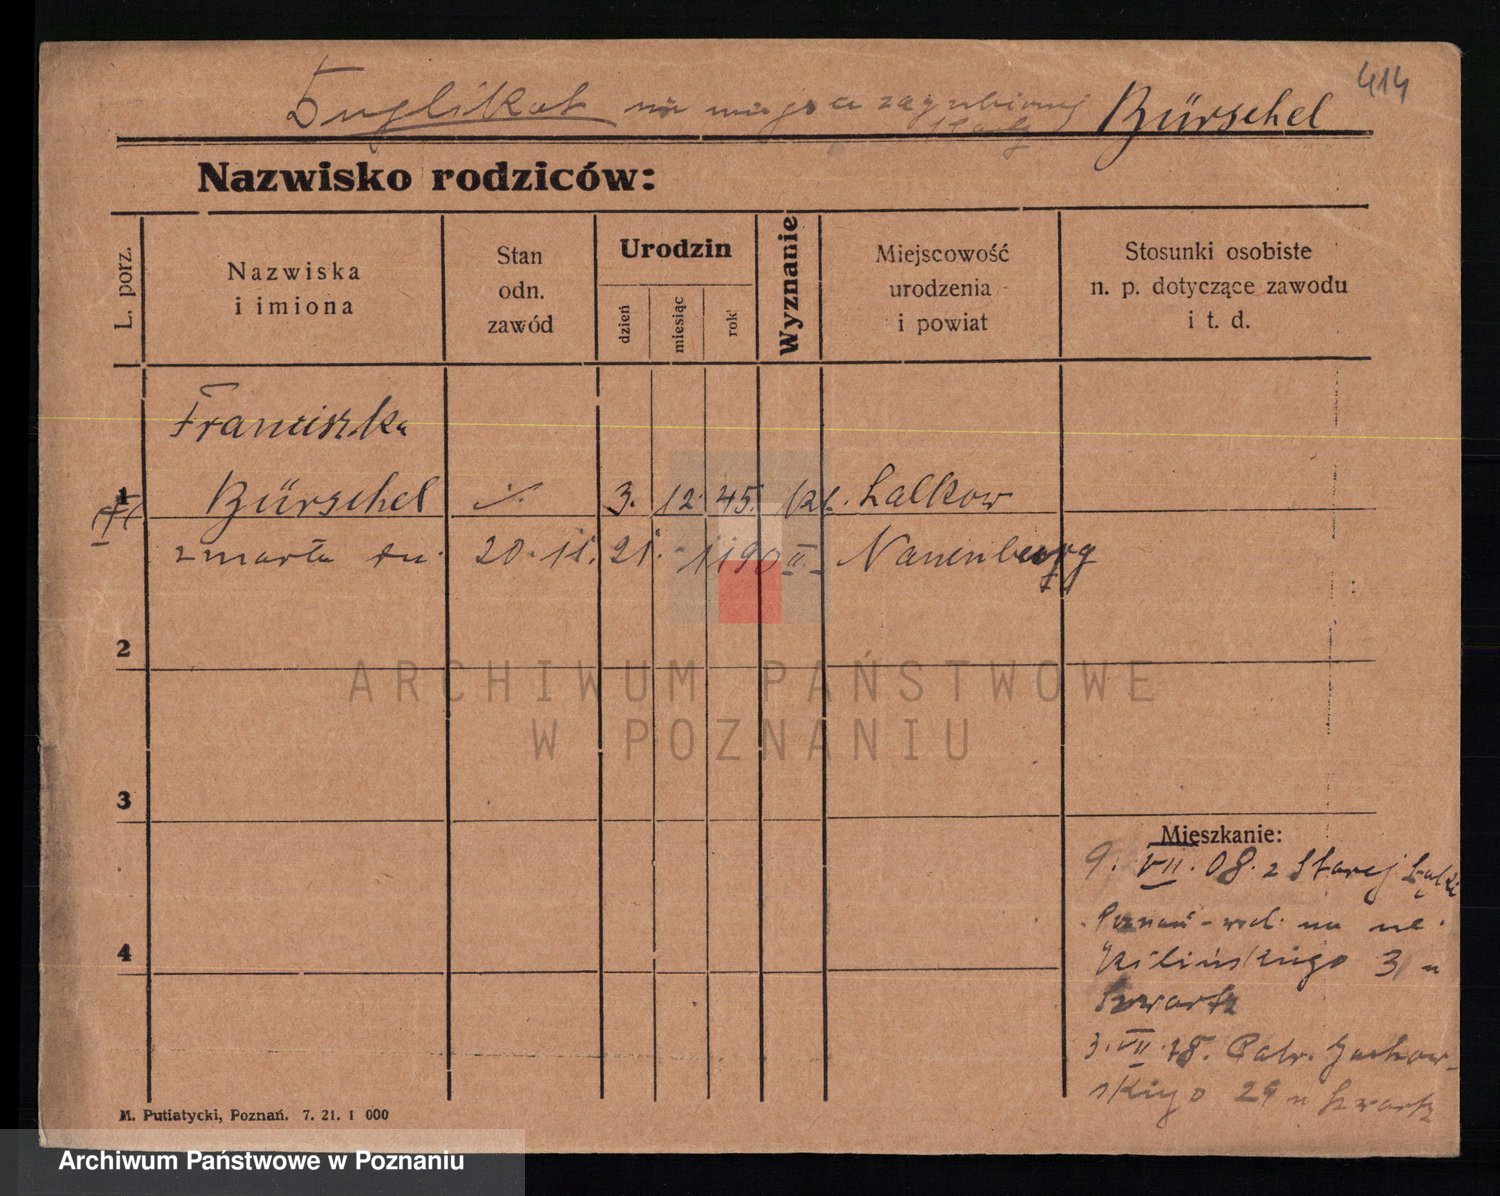 414
Duplikat na miejsce zagubionej Bürschel
Nazwisko rodziców:
L. porz.
Nazwiska
i imiona
Stan
odn.
zawód
Urodzin
dzień
miesiąc
rok
Wyznanie
Miejscowość
urodzenia
i powiat
Stosunki osobiste
n. p. dotyczące zawodu
i t. d.
Franciszka
1 Bürschel ./. 3. 12. 45. Lalkow
zmarła dn. 20. 11. 21. Nauenburg
2
3
4
ARCHIWUM PAŃSTWOWE
W POZNANIU
Mieszkanie:
9. VII. 08. z Starej
Poznań - na
Kilińskiego 3 u
Szwartz
3. VII. 18. Patr. Jackow-
skiego 29 u Szwartz
M. Putiatycki, Poznań. 7. 21. 1 000
Archiwum Państwowe w Poznaniu